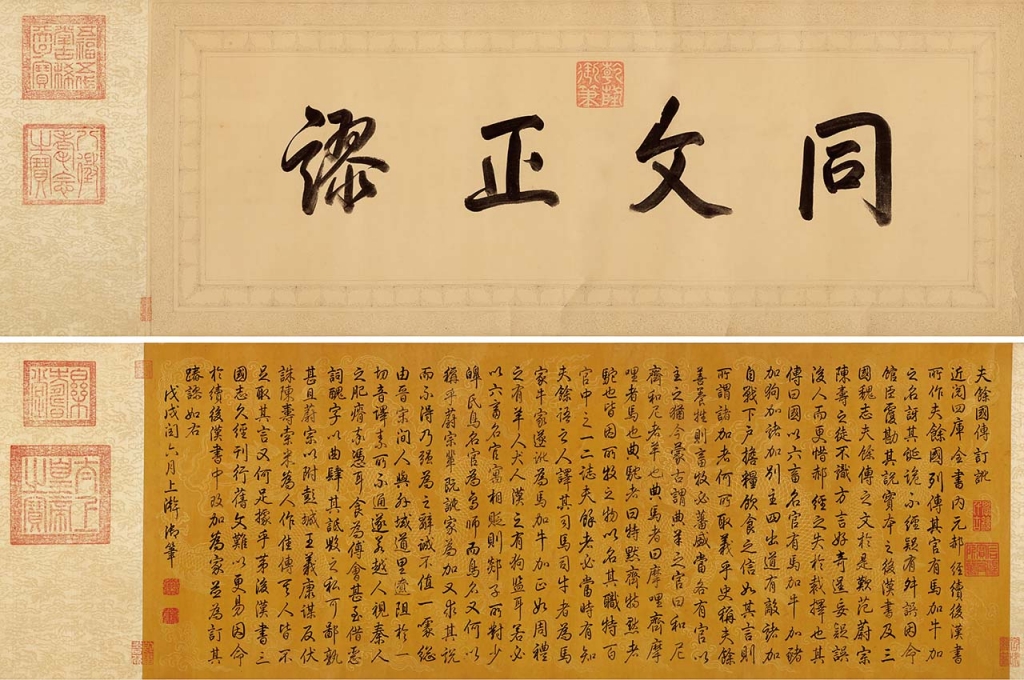 同文正謬
乾隆御筆
五福五代堂古稀天子寶
八徵耄念之寶
夫餘國傳訂訛
近閱四庫全書內元郝經續後漢書
所作夫餘國列傳其官有馬加牛加
之名訝其誕詭不經疑有舛誤因命
館臣覆勘其說實本之後漢書及三
國魏志夫餘傳之文於是歎范蔚宗
陳壽之徒不識方言好奇逞妄疑誤
後人而更惜郝經之失於裁擇也其
傳曰國以六畜名官有馬加牛加豬
加狗加諸加別主四出道有敵諸加
自戰下戶擔糧飲食之信如其言則
所謂諸加者何所取義乎史稱夫餘
善養牲則畜牧必蕃盛當各有官以
主之猶今蒙古謂典羊之官曰和尼
齊和尼者羊也典馬者曰摩哩齊摩
哩者馬也典駝者曰特默齊特默者
駝也皆因所牧之物以名其職特百
官中之一二志夫餘者必當時有知
夫餘語之人譯其司馬司牛者為馬
家牛家遂訛為馬加牛加正如周禮
之有羊人犬人漢之有狗監耳若必
以六畜名官寓相貶則郯子所對少
皞氏鳥名官為鳥師而鳥名又何以
稱乎蔚宗輩既訛家為加又求其說
而不得乃強為之辭誠不值一噱總
由晉宋間人與外域道里遼阻於一
切音譯素所不通遂若越人視秦人
之肥瘠率憑耳食為傳會甚至借惡
詞醜字以曲肆其詆毀之私可鄙孰
甚且蔚宗以附彭城王義康謀反伏
誅陳壽索米為人作佳傳其人皆不
足取其言又何足據乎第後漢書三
國志久經刊行舊文難以更易因命
於續後漢書中改加為家並為訂其
踳謬如右
戊戌閏六月上澣御筆
太上皇帝之寶